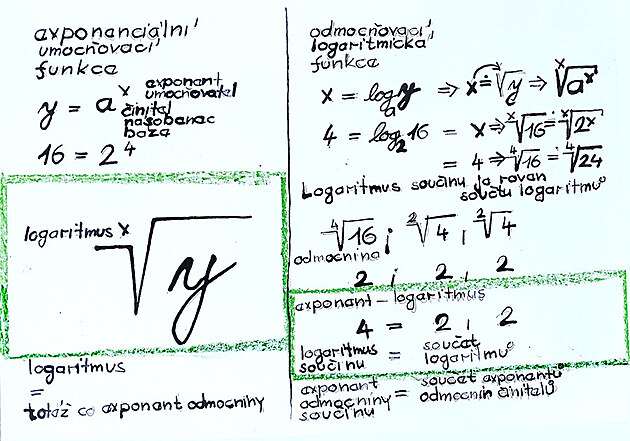 axponanciálni
umocňovací
funkca
y = a^x axponant
umocňovatal
činital
nasobanac
baza
16 = 2^4
logaritmus x√y
logaritmus
=
totáž co axponant odmocniny
odmocňovací
logaritmická
funkca
x = log_a y ⇒ x ≐ √y ⇒ x√a^x
4 = log_2 16 = x ⇒ x√16 = x√2^x
= 4 ⇒ 4√16 = 4√24
Logaritmus součinu ja rovan
součtu logaritmů
4√16 ; 2√4 , 2√4
odmocnina
2 ; 2 , 2
axponant – logaritmus
4 = 2 , 2
logaritmus součinu = součat logaritmů
axponant odmocniny součinu = součat axponantů odmocnin činitalů